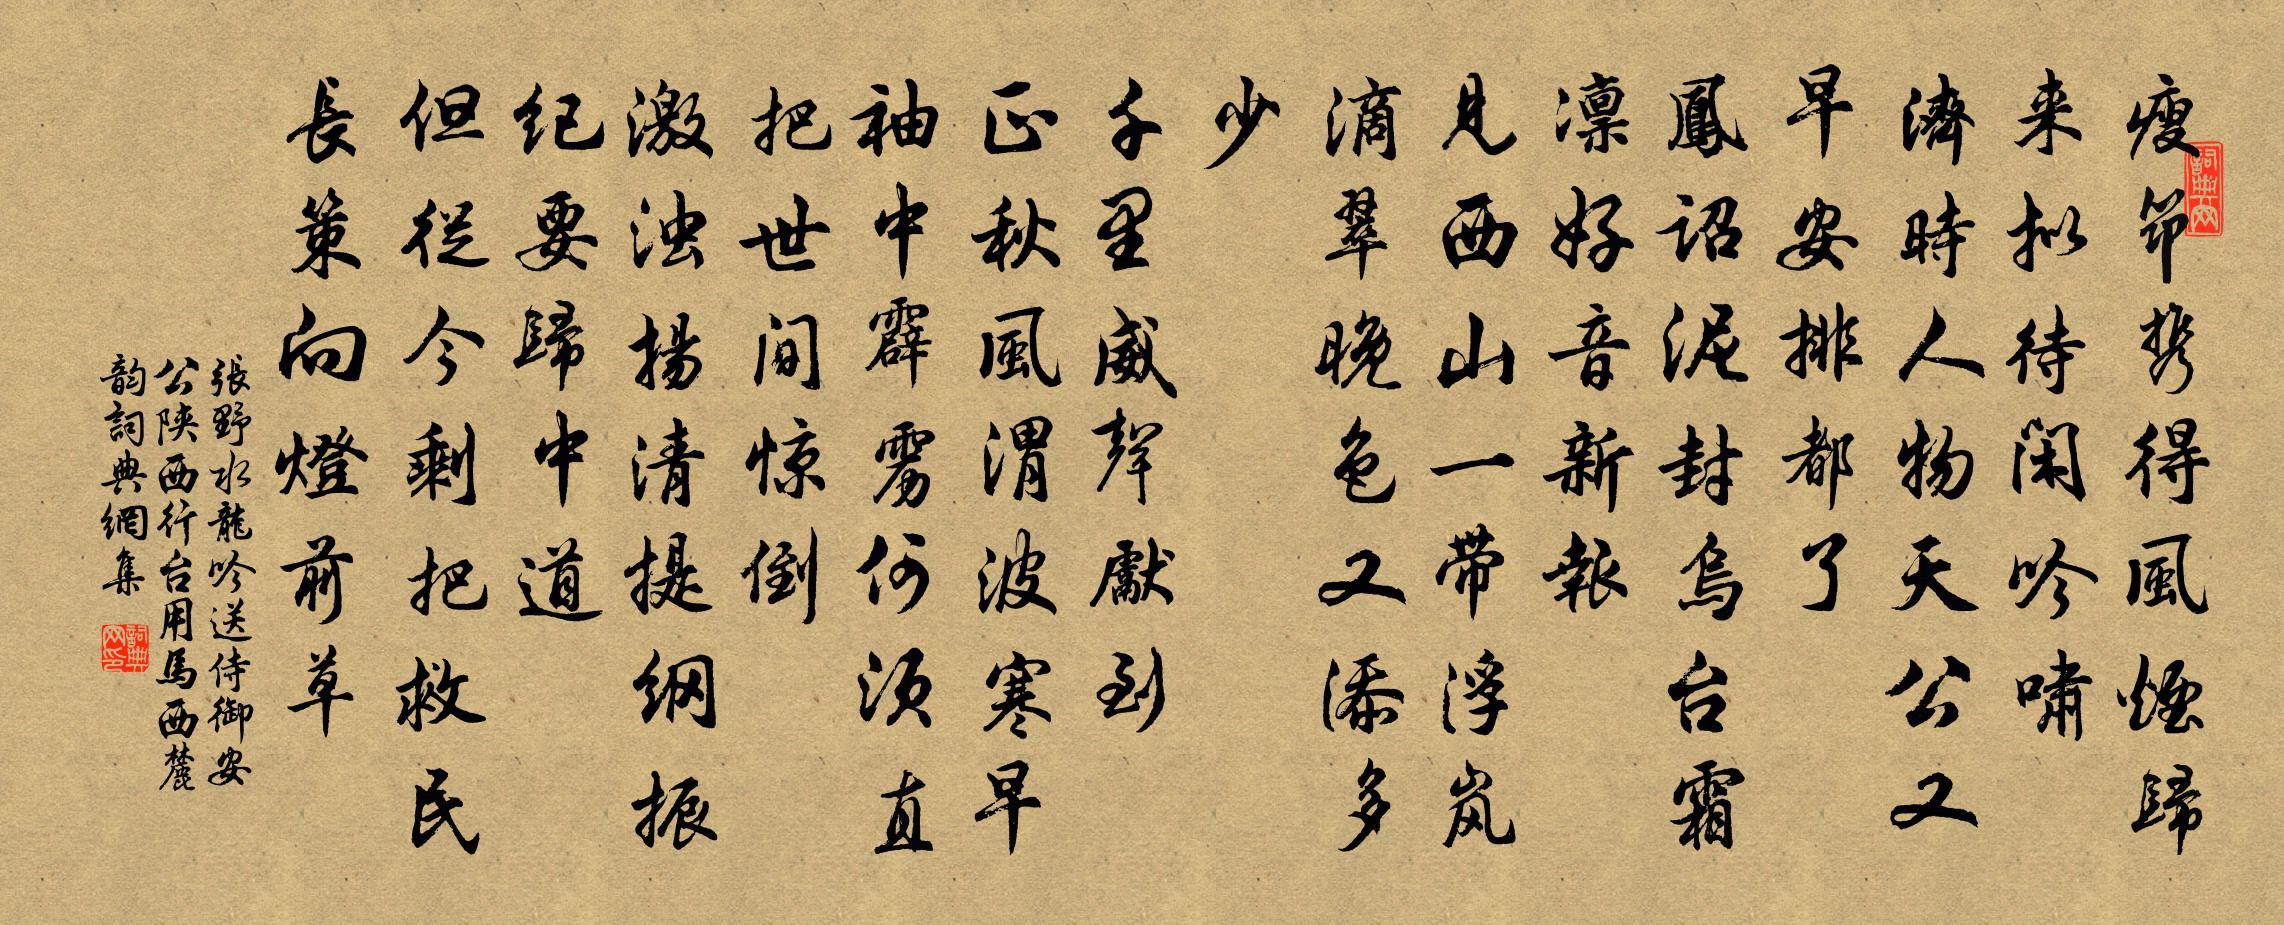 瘦筇携得風煙歸
来拟待闲吟嘯
濟時人物天公又
早安排都了
鳳詔泥封烏台霜
凛好音新報
見西山一带浮岚
滴翠晚色又添多
少
千里威聲獻到
正秋風渭波寒早
袖中霹雳何須直
把世间惊倒
激浊揚清提纲振
纪要歸中道
但從今剩把救民
長策向燈前草
張野水龍吟送侍御安
公陕西行台用馬西麓
韵詞典網集
詞典网
詞典网印